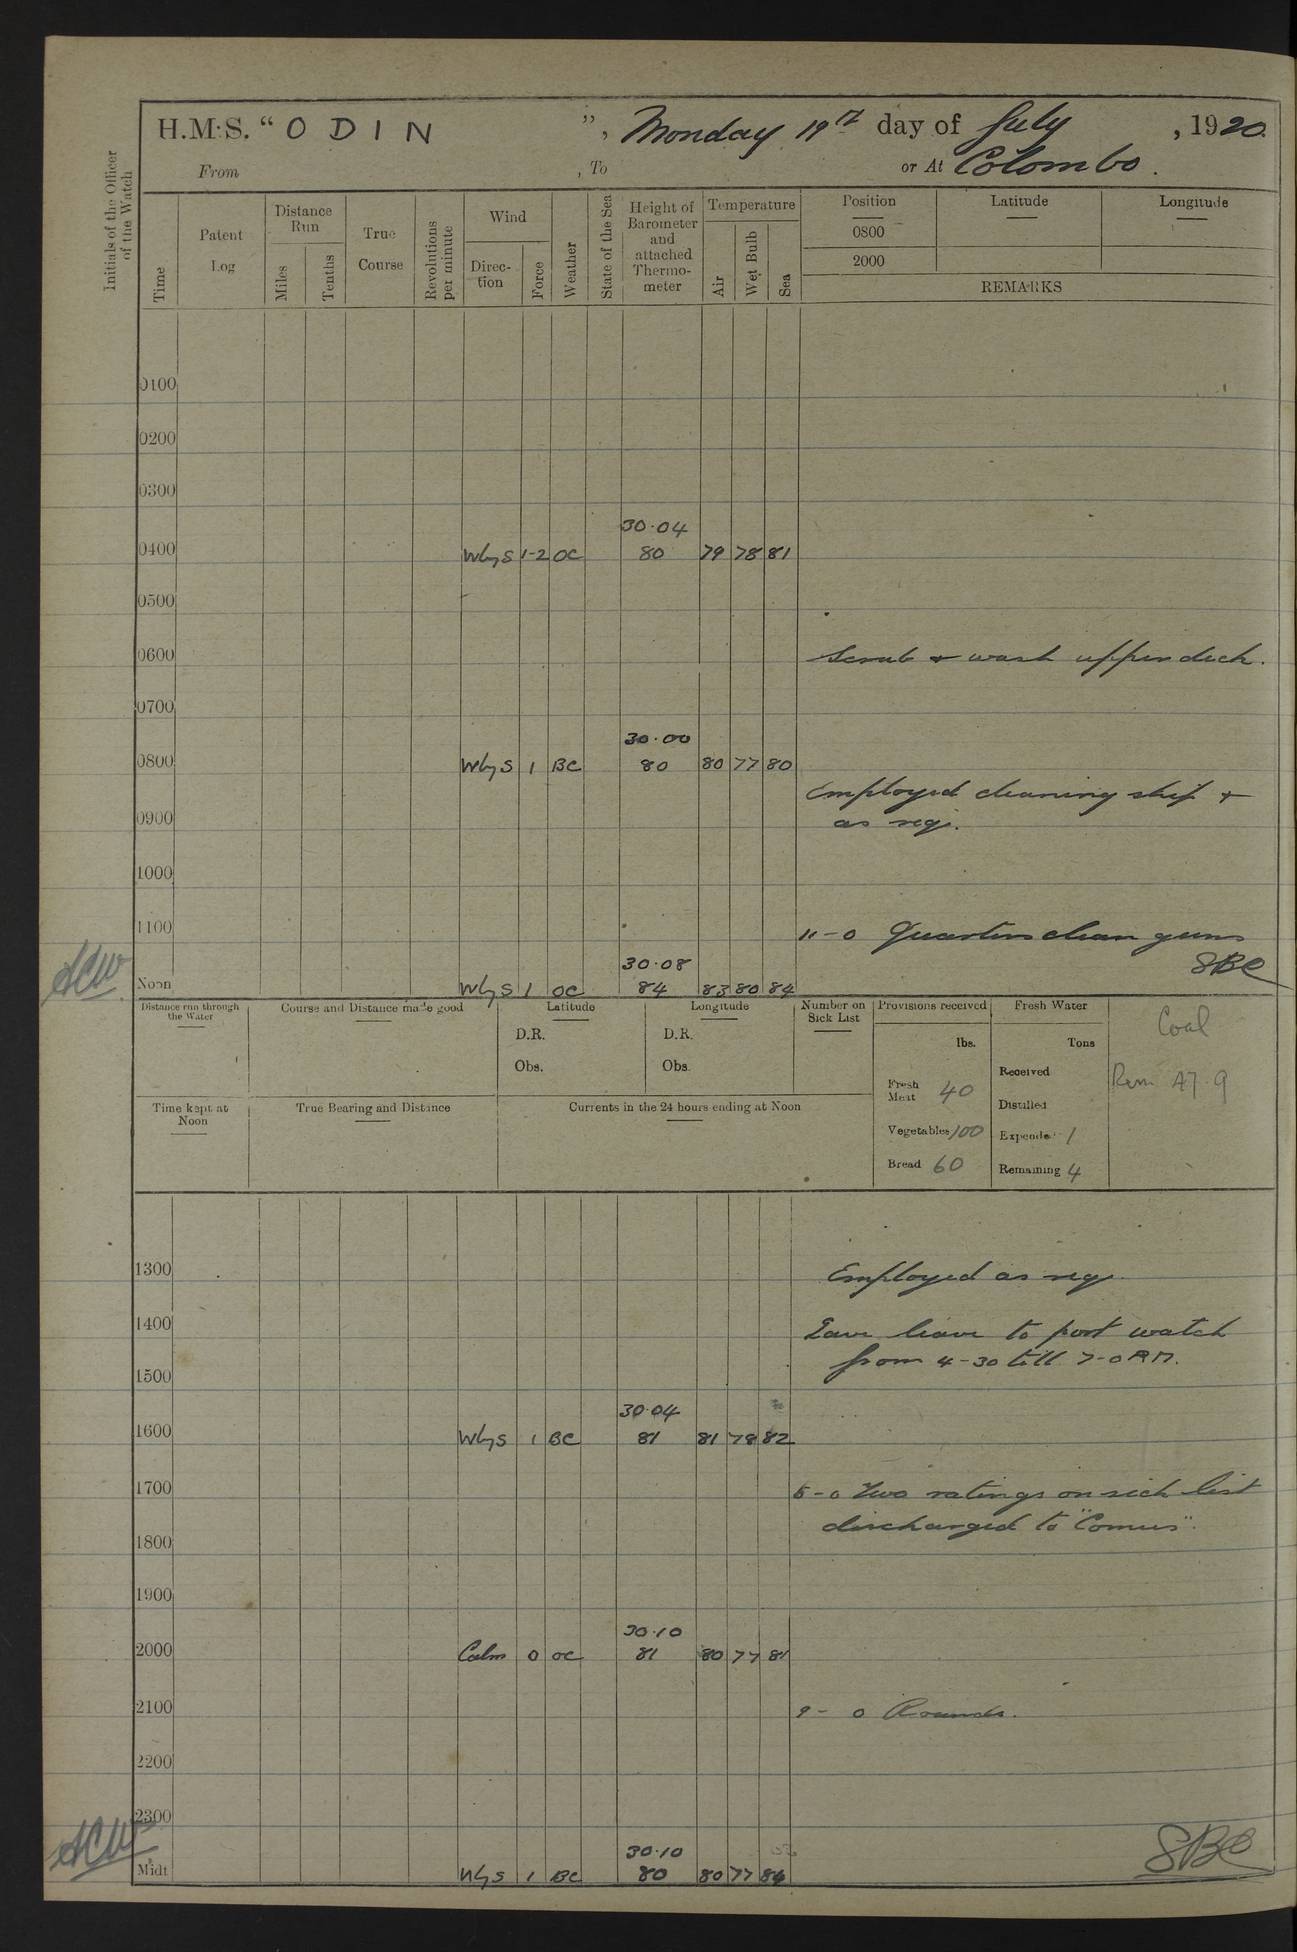 H.M.S. “ODIN”, Monday 19th day of July, 1920.
From , To or At Colombo.
Initials of the Officer of the Watch
Time
Patent Log
Distance Run
Miles
Tenths
True Course
Revolutions per minute
Wind
Direc-tion
Force
Weather
State of the Sea
Height of Barometer and attached Thermo-meter
Temperature
Air
Wet Bulb
Sea
Position
Latitude
Longitude
0800
2000
REMARKS
0100
0200
0300
30.04
0400 WbyS 1-2 OC 80 79 78 81
0500
0600 Scrub & wash upper deck.
0700
30.00
0800 WbyS 1 BC 80 80 77 80
Employed cleaning ship &
0900 as req.
1000
1100 11-0 Quarters clean guns
ACW 30.08 SBC
Noon WbyS 1 OC 84 83 80 84
Distance run through the Water
Course and Distance made good
Latitude
D.R.
Obs.
Longitude
D.R.
Obs.
Number on Sick List
Provisions received
lbs.
Fresh Meat 40
Vegetables 100
Bread 60
Fresh Water
Tons
Received
Distilled
Expended 1
Remaining 4
Coal
Rem 47.9
Time kept at Noon
True Bearing and Distance
Currents in the 24 hours ending at Noon
1300 Employed as req.
1400 Gave leave to port watch
1500 from 4-30 till 7-0 AM.
30.04
1600 WbyS 1 BC 81 81 78 82
1700 5-0 Two ratings on sick list
discharged to "Comus".
1800
1900
30.10
2000 Calm 0 OC 81 80 77 81
2100 9-0 Rounds.
2200
2300
ACW 30.10 SBC
Midt 1 BC 80 80 77 84